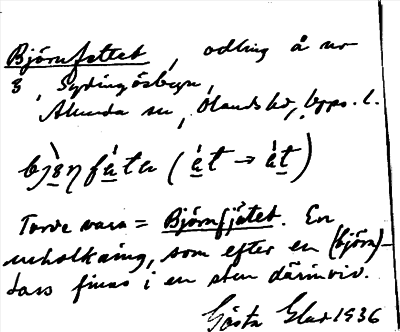 Björnfattet, odling å nr
8, Sydingösbyn,
Alunda sn, Olands hd, Upps. l.
(át → át)
Torde vara = Björnfjätet. En
urholkning, som efter en (björn)-
tass finns i en sten därinvid.
Gösta 1936